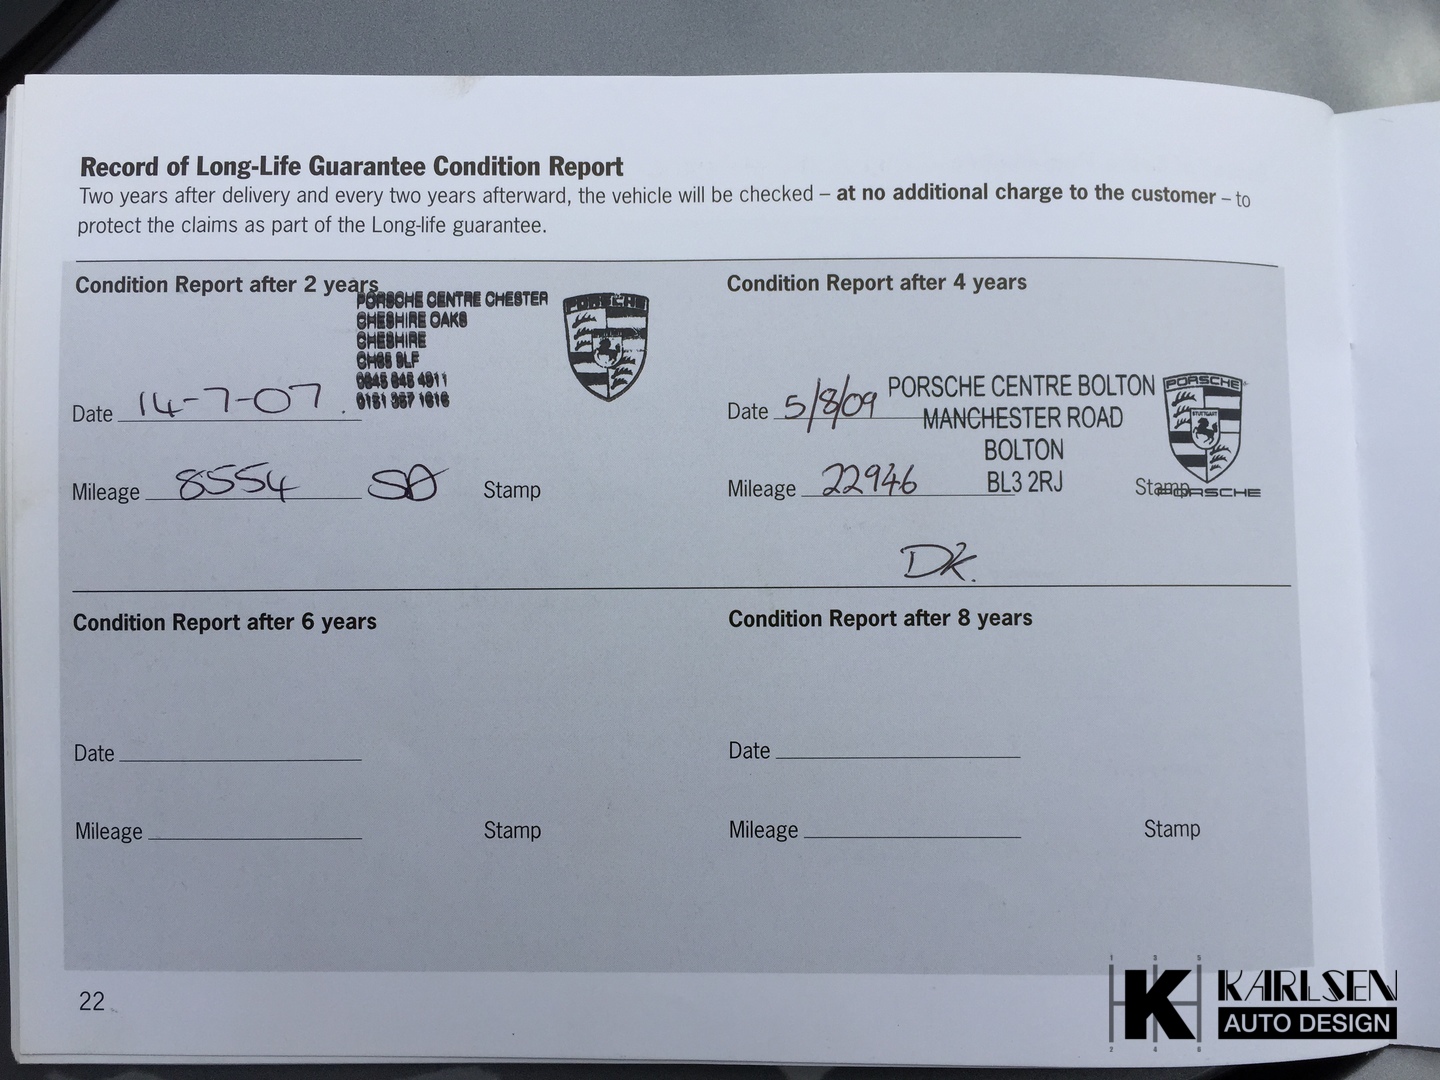 Record of Long-Life Guarantee Condition Report
Two years after delivery and every two years afterward, the vehicle will be checked – at no additional charge to the customer – to
protect the claims as part of the Long-life guarantee.
Condition Report after 2 years
PORSCHE CENTRE CHESTER
CHESHIRE OAKS
CHESHIRE
CH65 9LF
0845 845 4911
0151 357 1616
PORSCHE
Date 14-7-07.
Mileage 8554
SD
Stamp
Condition Report after 4 years
Date 5/8/09
PORSCHE CENTRE BOLTON
MANCHESTER ROAD
BOLTON
BL3 2RJ
PORSCHE
STUTTGART
PORSCHE
Mileage 22946
Stamp
DK.
Condition Report after 6 years
Date
Mileage
Stamp
Condition Report after 8 years
Date
Mileage
Stamp
22
1 3 5
K
2 4 6
KARLSEN
AUTO DESIGN